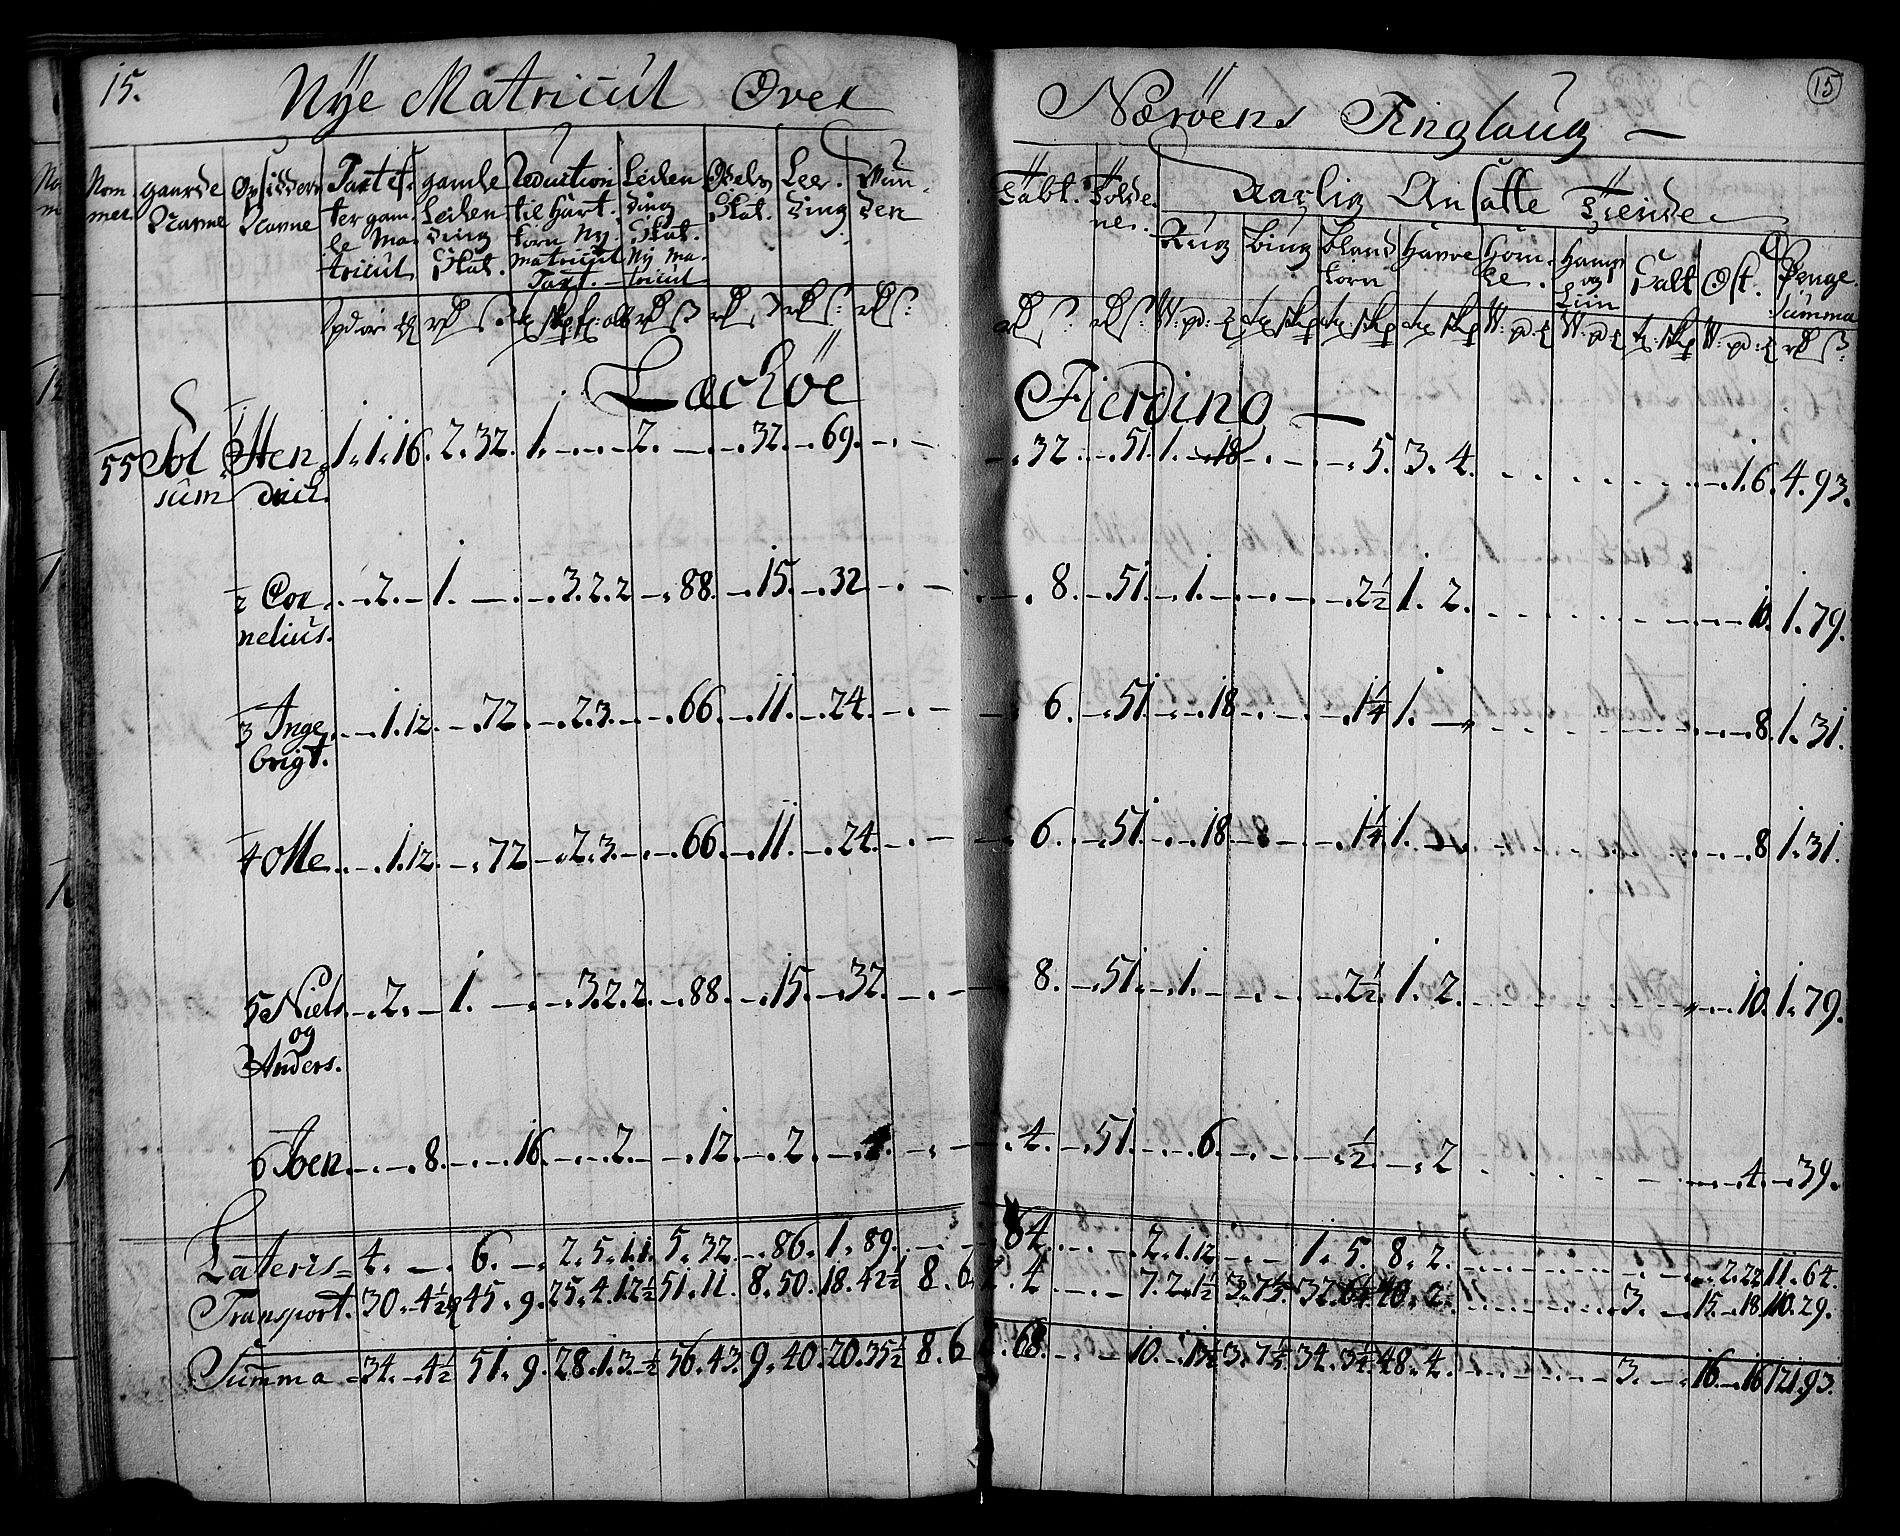 15. Nÿe Matricul Over Nærøens Tinglaug — 15
Nom mer. gaarde Navne Opsiddere Navne Taxt ef- ter gam- le Ma- tricul gamle Leilen ding Skat. Reduction til Hart korn Nÿ matricul Taxt. Leilen ding Skat. Nÿ ma- tricul Odels Skat. Lee- ding Vun- den
Tabt. Folde ne. Aarlig Ansatte Tiende
Rug Biug Bland korn Havre Hom- le. Hamp og Liin Salt Ost. Penge Summa
Leckøe Fierding —
55 Sol sum 1 Hen drich. 1. 1. 16. 2. 32. 1. 2. 32. 69. 32. 51. 1. 18 5. 3. 4. 1. 6. 4. 93.
2 Cor nelius. 2. 1. 3. 2. 2 88. 15. 32 8. 51. 1. 2½ 1. 2. 10. 1. 79.
3 Inge brigt. 1. 12. 72. 2. 3. 66. 11. 24. 6. 51. 18. 1¼ 1. 8. 1. 31.
4 Olle. 1. 12. 72 2. 3. 66. 11. 24. 6. 51. 18. 1¼ 1. 8 1. 31.
5 Niels og Anders. 2. 1. 3. 2. 2. 88. 15. 32. 8. 51. 1. 2½. 1. 2. 10. 1. 79.
6 Iben 8. 16. 2. 12. 2. 4. 51. 6. ½. 2 4. 39.
Lateris 4. 6. 2. 5. 1. 1. 5. 32. 86. 1. 89. 64. 2. 1. 12 1. 5. 8. 2. 2. 22 11. 64.
Transport. 30. 4½ 45. 9. 25. 4. 1 2½ 51. 11. 8. 50. 18. 42½ 8. 6. 4. 7. 2. 1½ 3. 7¼ 32. 40. 2 3. 15. 18. 110. 29.
Summa 34. 4½ 51. 9. 28. 1. 3½ 56. 43. 9. 40. 20. 35½ 8. 6 68. 10. 13½ 3. 7¼ 34. 3¼ 48. 4. 3. 16. 16 121. 93.